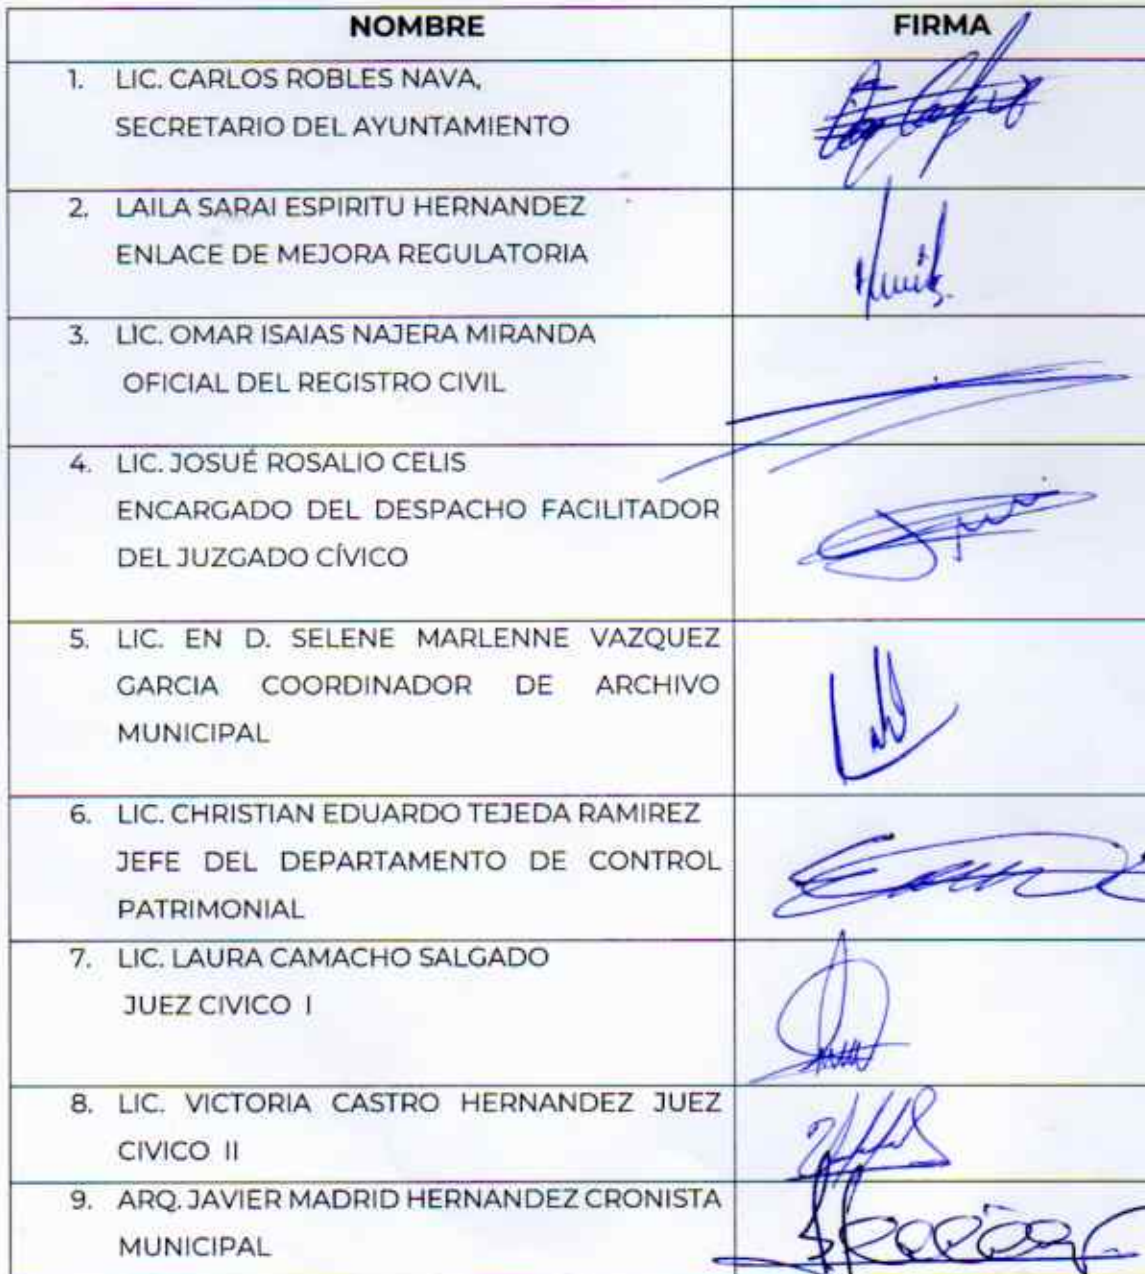 NOMBRE FIRMA
1. LIC. CARLOS ROBLES NAVA,
SECRETARIO DEL AYUNTAMIENTO
2. LAILA SARAI ESPIRITU HERNANDEZ
ENLACE DE MEJORA REGULATORIA
3. LIC. OMAR ISAIAS NAJERA MIRANDA
OFICIAL DEL REGISTRO CIVIL
4. LIC. JOSUÉ ROSALIO CELIS
ENCARGADO DEL DESPACHO FACILITADOR
DEL JUZGADO CÍVICO
5. LIC. EN D. SELENE MARLENNE VAZQUEZ
GARCIA COORDINADOR DE ARCHIVO
MUNICIPAL
6. LIC. CHRISTIAN EDUARDO TEJEDA RAMIREZ
JEFE DEL DEPARTAMENTO DE CONTROL
PATRIMONIAL
7. LIC. LAURA CAMACHO SALGADO
JUEZ CIVICO I
8. LIC. VICTORIA CASTRO HERNANDEZ JUEZ
CIVICO II
9. ARQ. JAVIER MADRID HERNANDEZ CRONISTA
MUNICIPAL